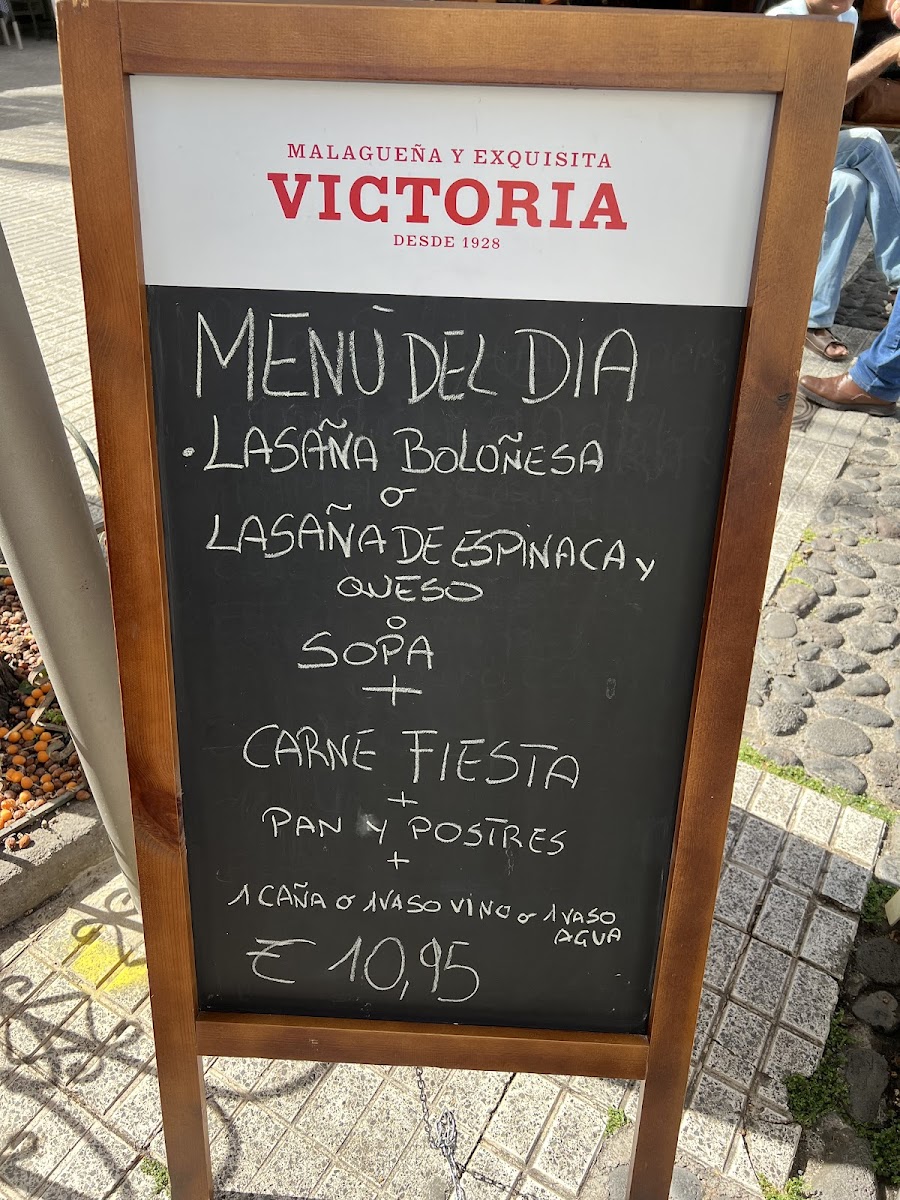 MALAGUEÑA Y EXQUISITA
VICTORIA
DESDE 1928
MENÙ DEL DIA
• LASAÑA BOLOÑESA
o
LASAÑA DE ESPINACA y
QUESO
o
SOPA
+
CARNE FIESTA
+
PAN y POSTRES
+
1 CAÑA o 1 VASO VINO o 1 VASO
AGUA
€ 10,95